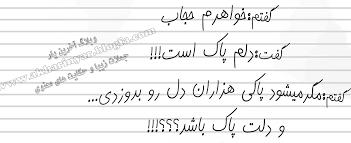 گفتم:خواهرم حجاب
گفت:دلم پاک است!!!
گفتم:مگر میشود پاکی هزاران دل رو بدوزدی...
و دلت پاک باشد؟؟؟!!!
وبلاگ آخرین یار
جملات زیبا و حکایت های معنوی
www.akharinyar.blogfa.com